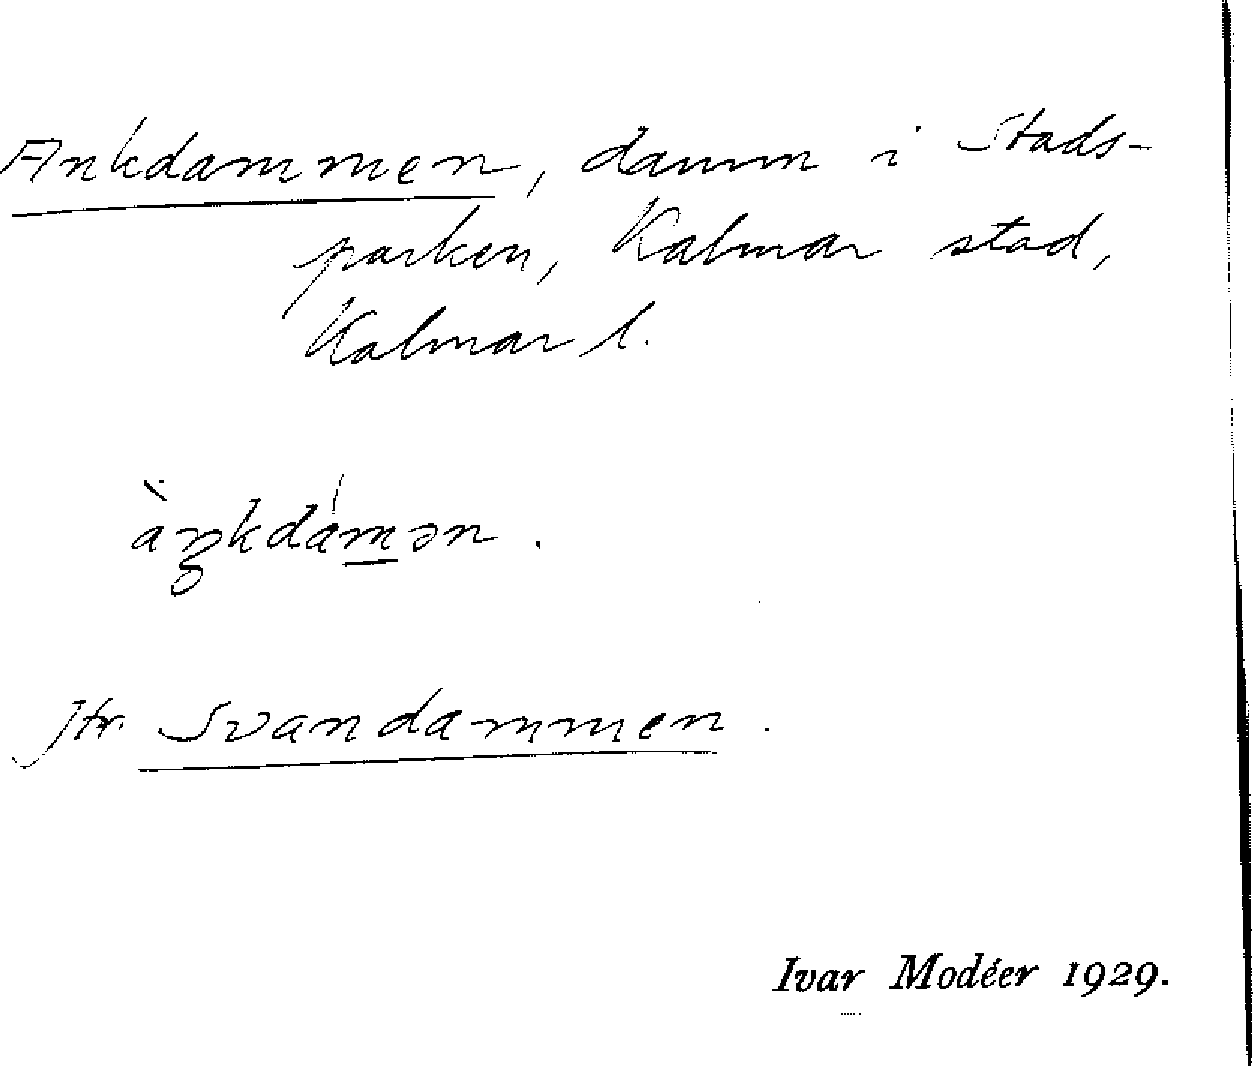 Ankdammen, damm i Stads-
parken, Kalmar stad,
Kalmar l.
àŋkdámən.
Jfr Svandammen.
Ivar Modéer 1929.